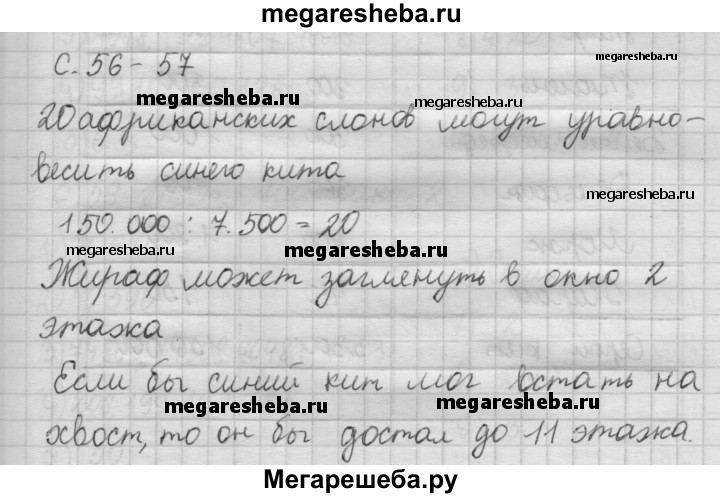 megaresheba.ru
С. 56 - 57
megaresheba.ru
megaresheba.ru
megaresheba.ru
20 африканских слонов могут уравно-
весить синего кита
megaresheba.ru
150.000 : 7.500 = 20
megaresheba.ru
megaresheba.ru
Жираф может заглянуть в окно 2
этажа
Если бы синий кит мог встать на
megaresheba.ru
megaresheba.ru
хвост, то он бы достал до 11 этажа.
Мегарешеба.ру